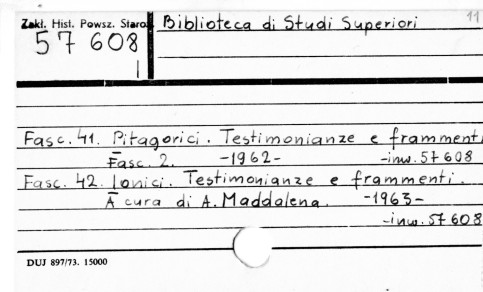 Zakł. Hist. Powsz. Staroż
57 608
Biblioteca di Studi Superiori
11
Fasc. 41. Pitagorici. Testimonianze e frammenti
Fasc. 2. -1962- -inw. 57 608
Fasc. 42. Ionici. Testimonianze e frammenti.
A cura di A. Maddalena. -1963-
-inw. 57 608
DUJ 897/73. 15000